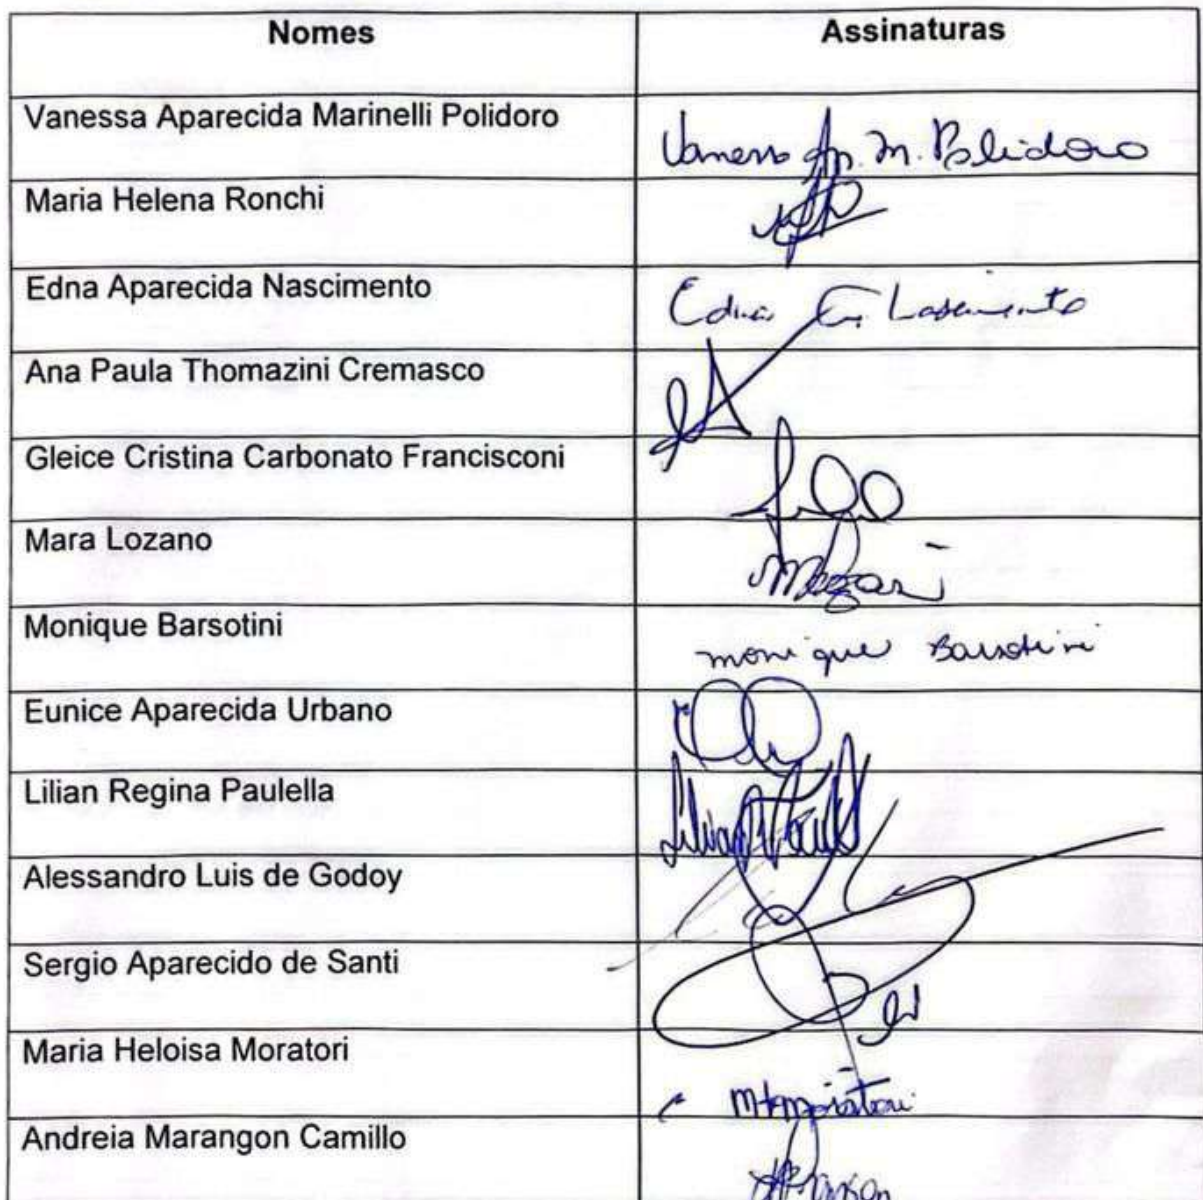 Nomes Assinaturas
Vanessa Aparecida Marinelli Polidoro Vanessa Ap. M. Polidoro
Maria Helena Ronchi
Edna Aparecida Nascimento Edna
Ana Paula Thomazini Cremasco
Gleice Cristina Carbonato Francisconi
Mara Lozano
Monique Barsotini monique Barsotini
Eunice Aparecida Urbano
Lilian Regina Paulella
Alessandro Luis de Godoy
Sergio Aparecido de Santi
Maria Heloisa Moratori MHMoratori
Andreia Marangon Camillo